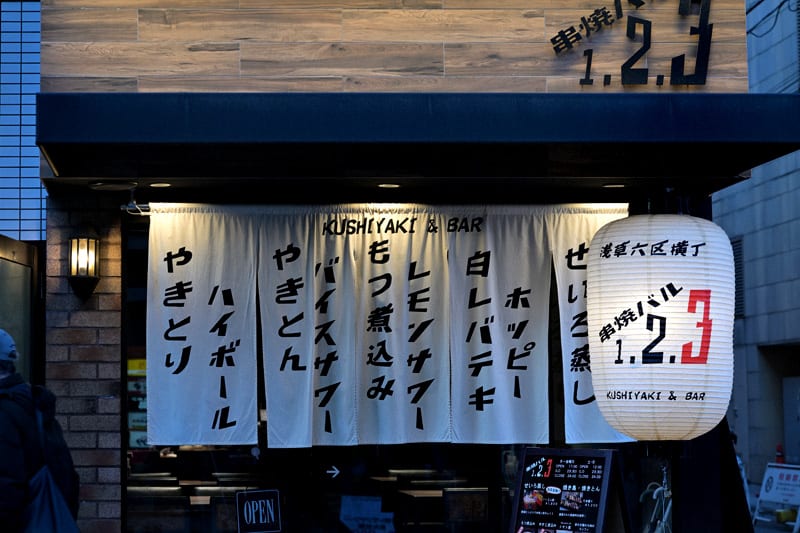 串焼バル
1.2.3
KUSHIYAKI & BAR
やきとり
ハイボール
やきとん
バイスサワー
もつ煮込み
レモンサワー
白レバテキ
ホッピー
せいろ蒸し
浅草六区横丁
串焼バル
1.2.3
KUSHIYAKI & BAR
→
OPEN
串焼バル
1.2.3
せいろ蒸し
焼き鳥・焼きとん